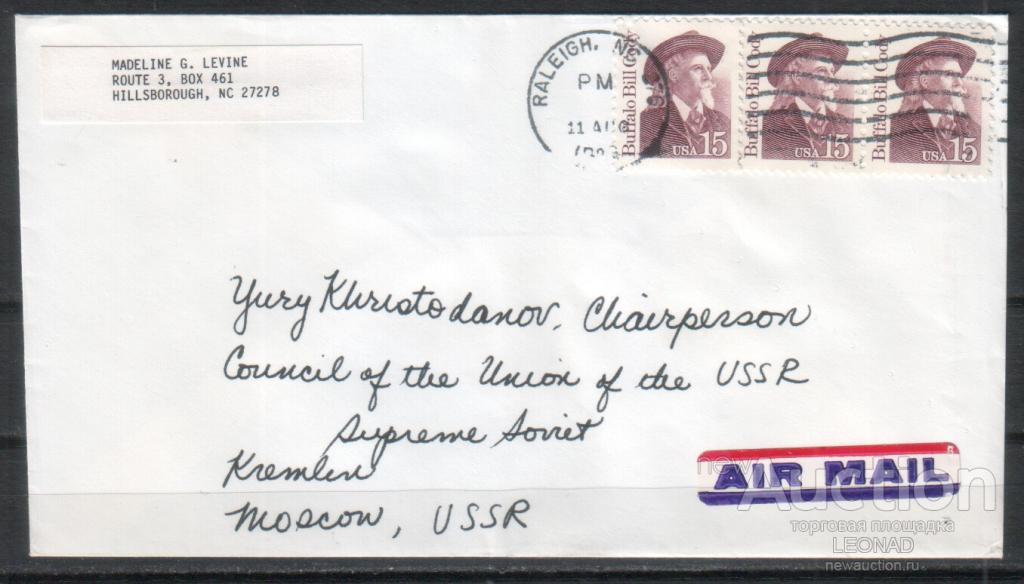 MADELINE G. LEVINE
ROUTE 3, BOX 461
HILLSBOROUGH, NC 27278
RALEIGH, NC
PM
11 AUG
Buffalo Bill Cody
USA 15
Buffalo Bill Cody
USA 15
Buffalo Bill Cody
USA 15
Yury Khristodanov, Chairperson
Council of the Union of the USSR
Supreme Soviet
Kremlin
Moscow, USSR
AIR MAIL
newAuction
торговая площадка
LEONAD
newauction.ru